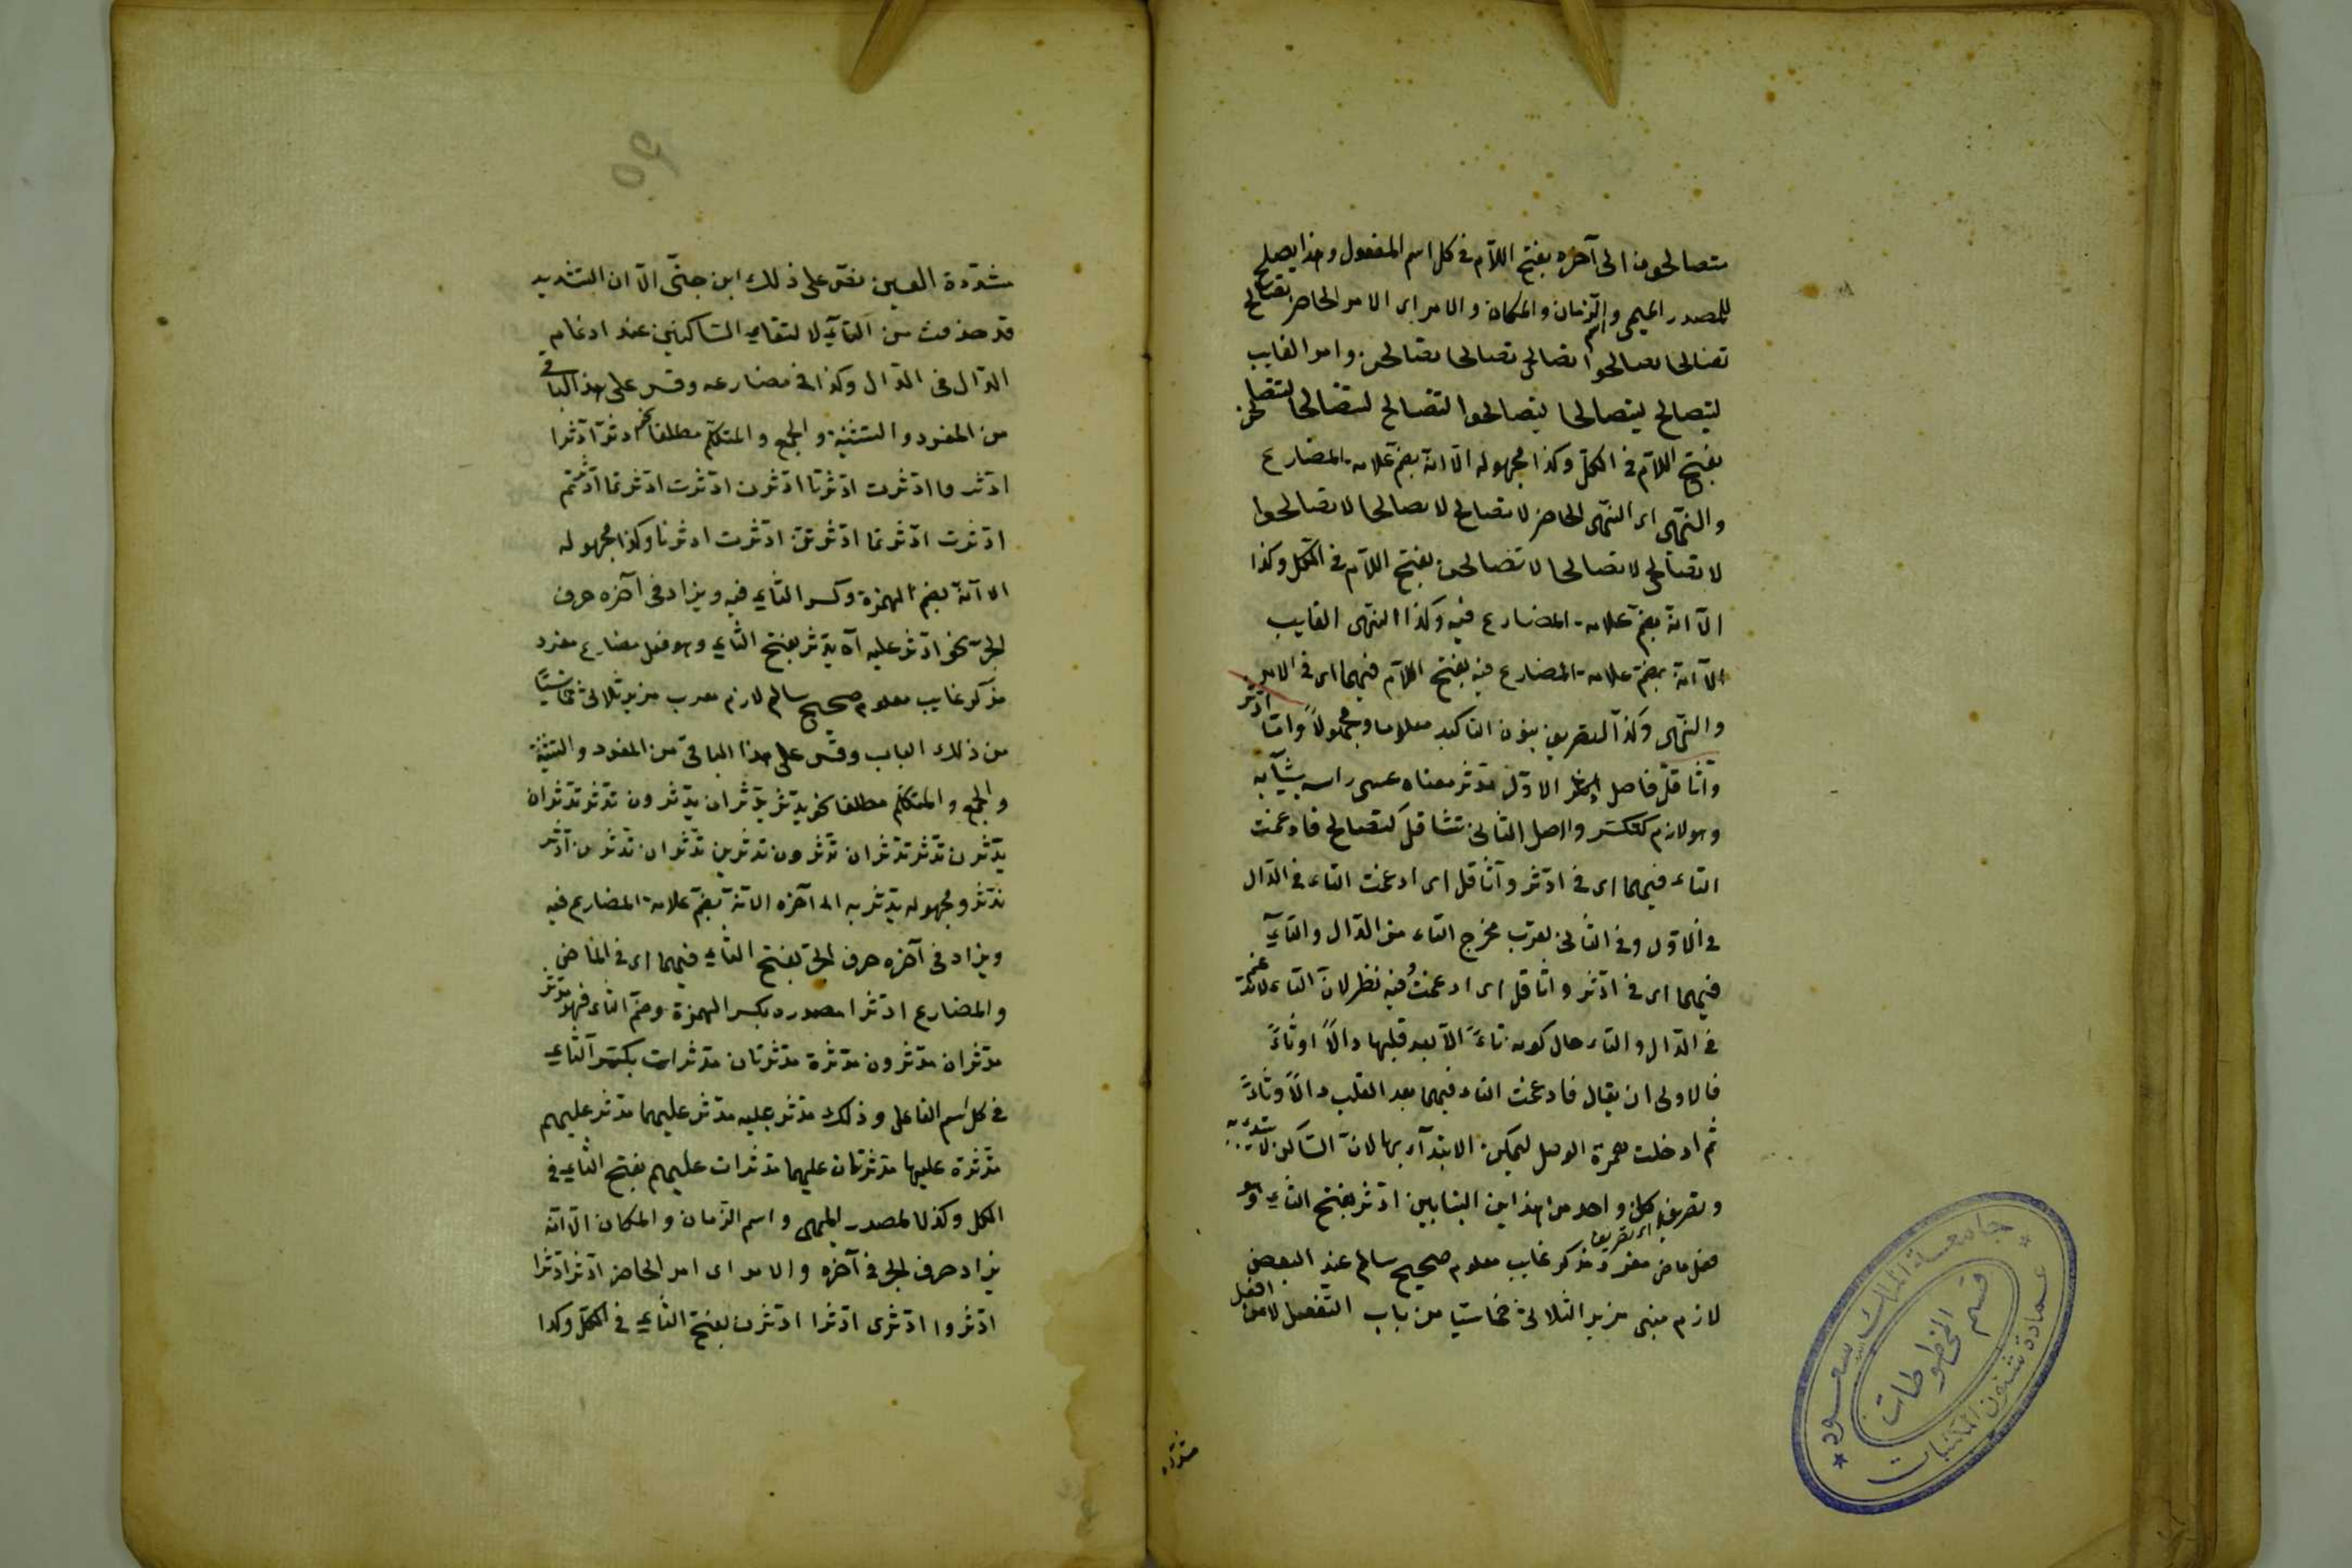 متصالحون الى آخره بفتح اللام فى كل اسم المفعول وهذا يصلح
للمصدر الميمى والزمان والمكان والامر اى الامر الحاضر تصالح
اسم
تصالحا تصالحوا تصالحى تصالحا تصالحن وامر الغايب
ليتصالح ليتصالحا ليتصالحوا لتتصالح لتتصالحا ليتصالحن
بفتح اللام فى الكل وكذا مجهوله الا انه بضم علامة المضارع
والنهى اى النهى الحاضر لا تصالح لا تصالحا لا تصالحوا
لا تصالحى لا تصالحا لا تصالحن بفتح اللام فى الكل وكذا
الا انه بضم علامة المضارع فيه وكذا النهى الغايب
الا انه بضم علامة المضارع فيه بفتح اللام فيهما اى فى الامر
والنهى وكذا التصريف بنون التاكيد معلوما ومجهولاً واما ادّثر
واثّاقل فاصل الاول تدثر معناه
وهو لازم كتكسر واصل الثانى تثاقل كتصالح فادغمت
التاء فيهما اى فى ادّثر واثّاقل اى ادغمت التاء فى الدال
فى الاول وفى الثانى بقرب مخرج التاء من الدال والثاء
فيهما اى فى ادّثر واثّاقل اى ادغمت وفيه نظر لان التاء لا تدغم
فى الدال والثاء حال كونه تاءً الا بعد قلبها دالاً او ثاءً
فالاولى ان يقال فادغمت التاء فيهما بعد القلب دالاً وثاءً
ثم ادخلت همزة الوصل ليمكن الابتدآء بها لان الساكن لا يبتدئ به
وتصريف كل واحد من هذاين البنابين ادّثر بفتح الثاء وهو
اى تصريف
فعل ماض مفرد مذكر غايب معلوم صحيح سالم عند البعض
لازم مبنى مزيد الثلاثى خماسيا من باب التفعل لا من افعل
مشددة
مشدّدة العين نص على ذلك ابن جنّى الا ان التشديد
قد حذفت من التاء لالتقاء الساكنين عند ادغام
الدال فى الدال وكذا فى مضارعه وقس على هذا الباقى
من المفرد والتثنية والجمع والمتكلم مطلقا نحو ادّثر ادّثرا
ادّثروا ادّثرت ادّثرتا ادّثرن ادّثرت ادّثرتما ادّثرتم
ادّثرت ادّثرتما ادّثرتن ادّثرت ادّثرنا وكذا مجهوله
الا انه بضم الهمزة وكسر الثاء فيه ويزاد فى آخره حرف
الجر نحو ادّثر عليه آه يدّثر بفتح الثاء وهو فعل مضارع مفرد
مذكر غايب معلوم صحيح سالم لازم معرب مزيد ثلاثى خماسيًّا
من ذلك الباب وقس على هذا الباقى من المفرد والتثنية
والجمع والمتكلم مطلقا نحو يدّثر يدّثران يدّثرون تدّثر تدّثران
يدّثرن تدّثر تدّثران تدّثرون تدّثرين تدّثران تدّثرن ادّثر
ندّثر ومجهوله يدّثر به الى آخره الا انه بضم علامة المضارع فيه
ويزاد فى آخره حرف الجر بفتح الثاء فيهما اى فى الماضى
والمضارع ادّثرا مصدره بكسر الهمزة وضم الثاء فهو مدّثر
مدّثران مدّثرون مدّثرة مدّثرتان مدّثرات بكسر الثاء
فى كل اسم الفاعل وذلك مدّثر عليه مدّثر عليهما مدّثر عليهم
مدّثرة عليها مدّثرتان عليهما مدّثرات عليهم بفتح الثاء فى
الكل وكذا المصدر الميمى واسم الزمان والمكان الا انه
يزاد حرف الجر فى آخره والامر اى امر الحاضر ادّثر ادّثرا
ادّثروا ادّثرى ادّثرا ادّثرن بفتح الثاء فى الكل وكذا
جامعة الملك سعود
قسم المخطوطات
عمادة شئون المكتبات